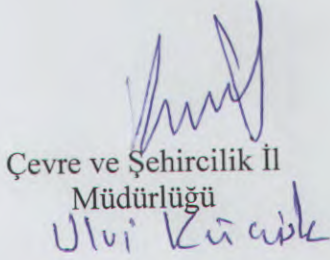 Çevre ve Şehircilik İl
Müdürlüğü
Ulvi Küçük